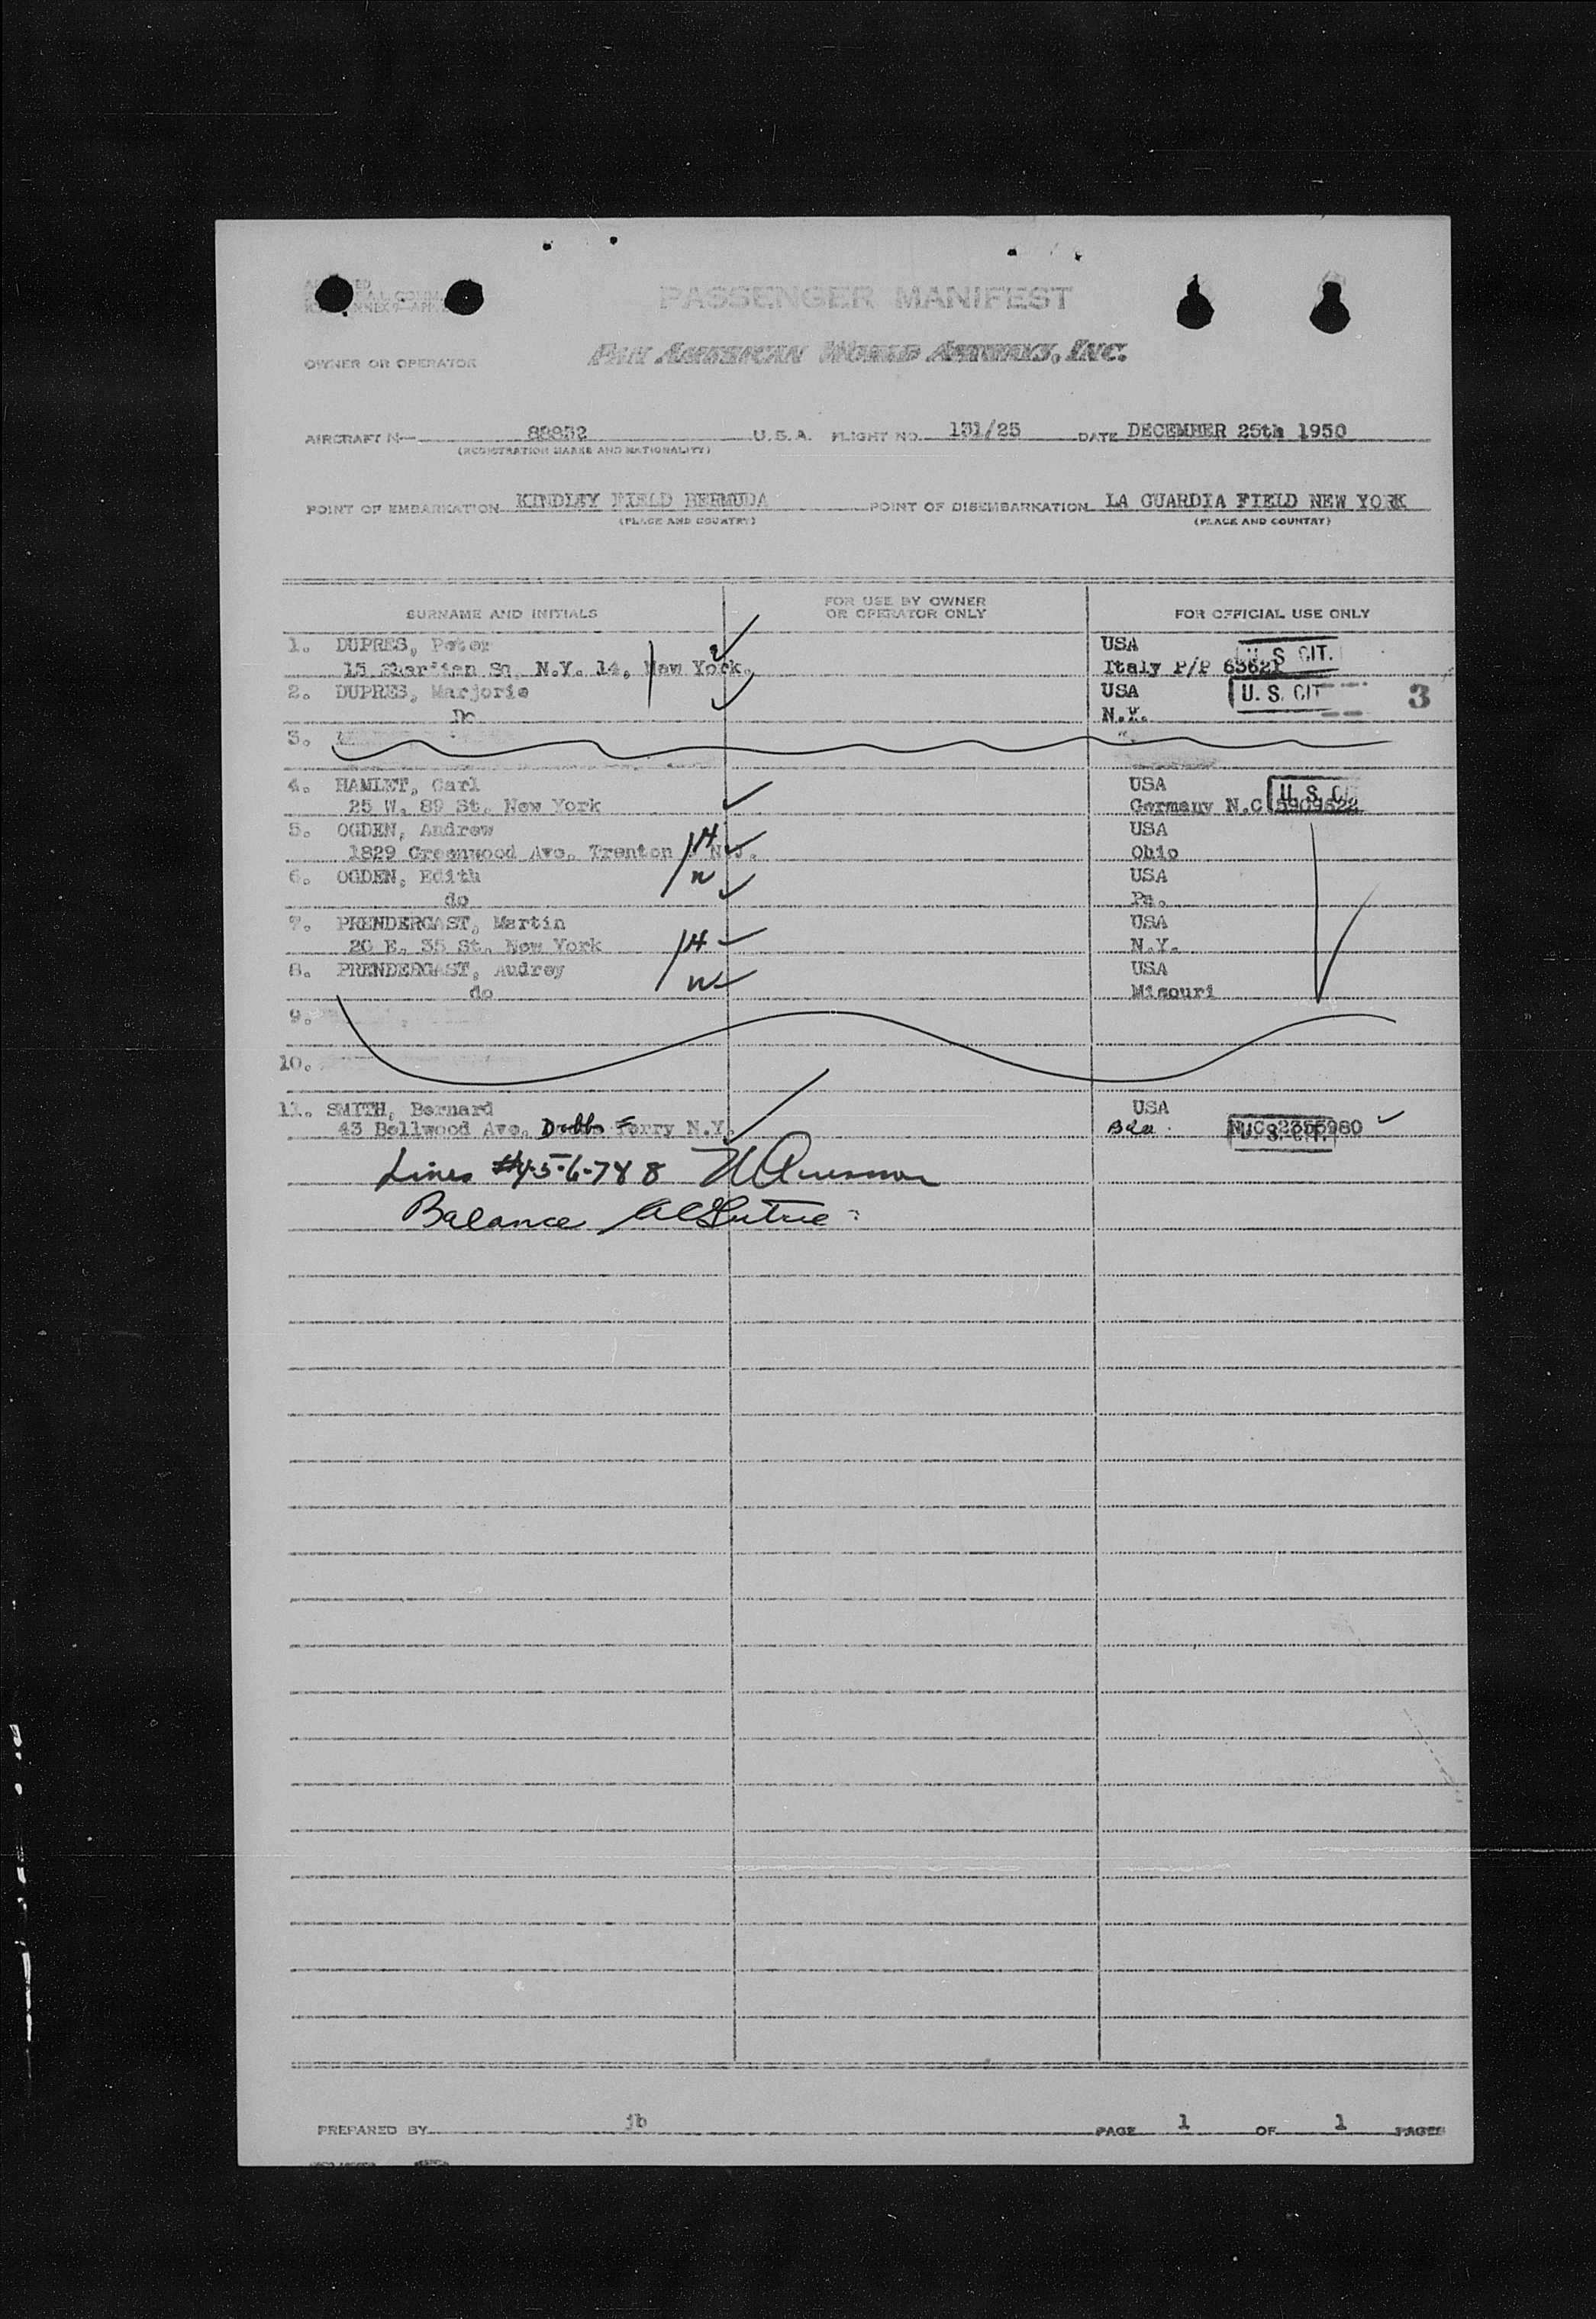 PASSENGER MANIFEST
OWNER OR OPERATOR PAN AMERICAN WORLD AIRWAYS, INC.
AIRCRAFT N— 88832 U.S.A. FLIGHT NO. 131/25 DATE DECEMBER 25th 1950
(REGISTRATION MARKS AND NATIONALITY)
POINT OF EMBARKATION KINDLEY FIELD BERMUDA POINT OF DISEMBARKATION LA GUARDIA FIELD NEW YORK
(PLACE AND COUNTRY) (PLACE AND COUNTRY)
SURNAME AND INITIALS FOR USE BY OWNER OR OPERATOR ONLY FOR OFFICIAL USE ONLY
1. DUPRES, Peter USA
15 Sq, N.Y. 14, New York. Italy P/P 63621 U. S CIT.
2. DUPRES, Marjorie USA U. S. CIT 3
Do N.Y.
3.
4. HAMLET, Carl USA U. S. CI
25 W. 89 St. New York Germany N.C 5909522
5. OGDEN, Andrew H USA
1829 Greenwood Ave. Trenton N.J. Ohio
6. OGDEN, Edith W USA
do Pa.
7. PRENDERGAST, Martin USA
20 E. 35 St. New York H N.Y.
8. PRENDERGAST, Audrey USA
do W Missouri
9.
10.
11. SMITH, Bernard USA
43 Bellwood Ave. Dobbs Ferry N.Y. Bda. U. S. CIT.
Lines #4-5-6-7 & 8
Balance
PREPARED BY jb PAGE 1 OF 1 PAGES